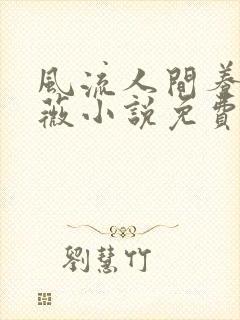 風流人間養
薇小説免費
劉慧竹